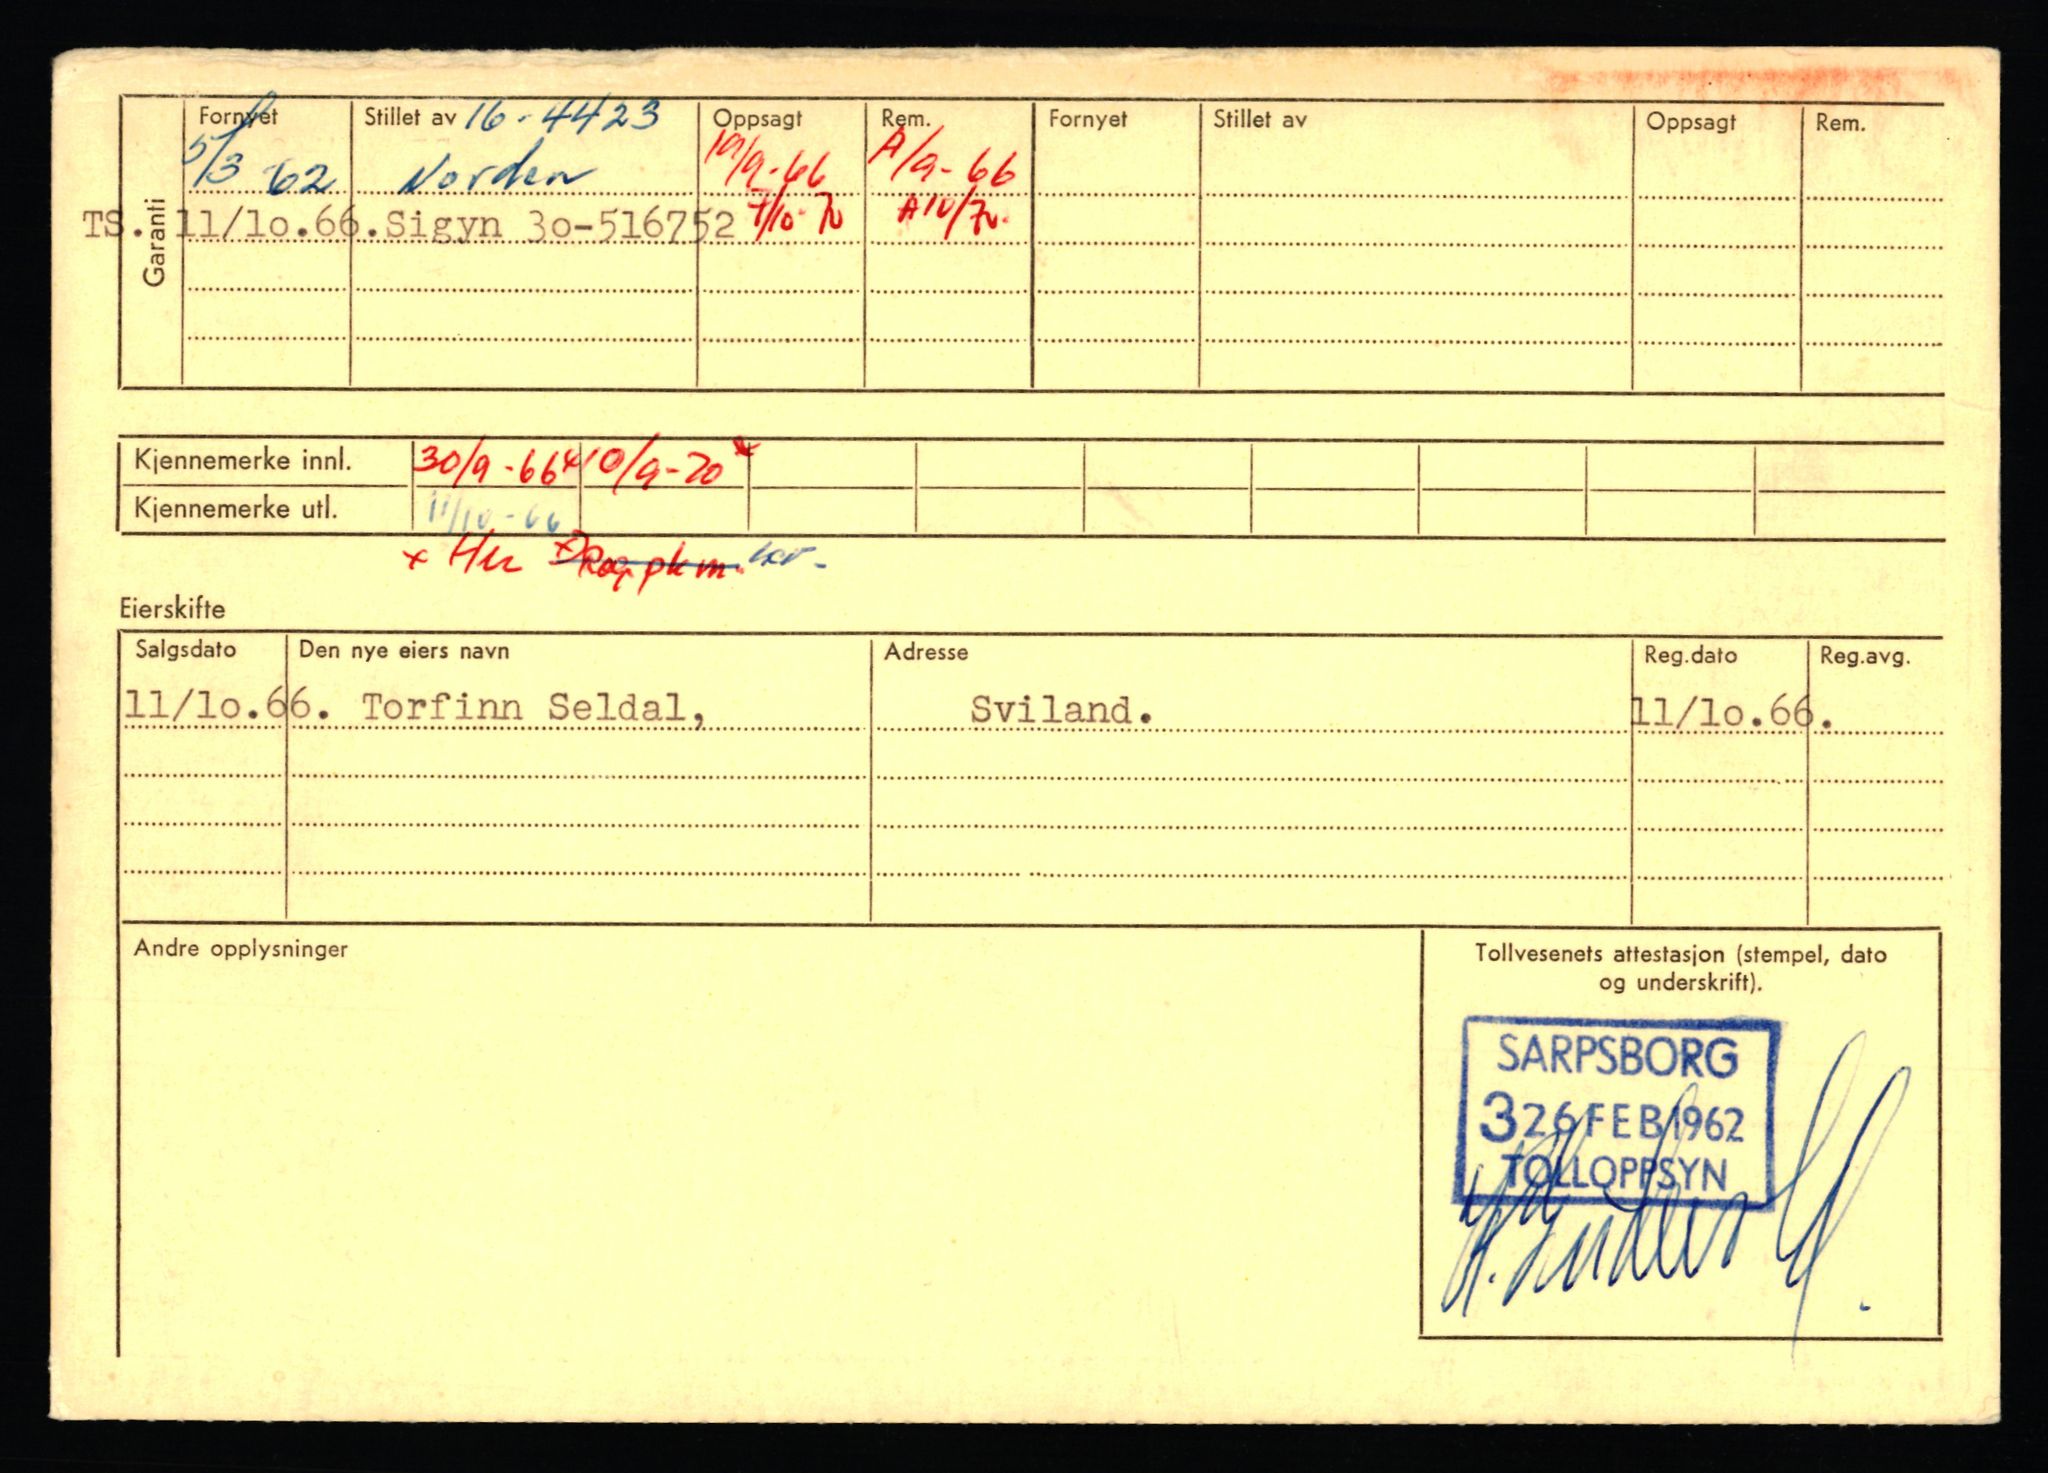 Garanti
Fornyet Stillet av 16-4423 Oppsagt Rem. Fornyet Stillet av Oppsagt Rem.
5/3 62 Norden 19/9-66 A/9-66
TS. 11/1o.66. Sigyn 3o-516752 7/10 70 A10/70.
Kjennemerke innl. 30/9-66 x 10/9-70 x
Kjennemerke utl. 11/10-66
x Her
Eierskifte
Salgsdato Den nye eiers navn Adresse Reg.dato Reg.avg.
11/1o.66. Torfinn Seldal, Sviland. 11/1o.66.
Andre opplysninger
Tollvesenets attestasjon (stempel, dato
og underskrift).
SARPSBORG
3 26 FEB 1962
TOLLOPPSYN